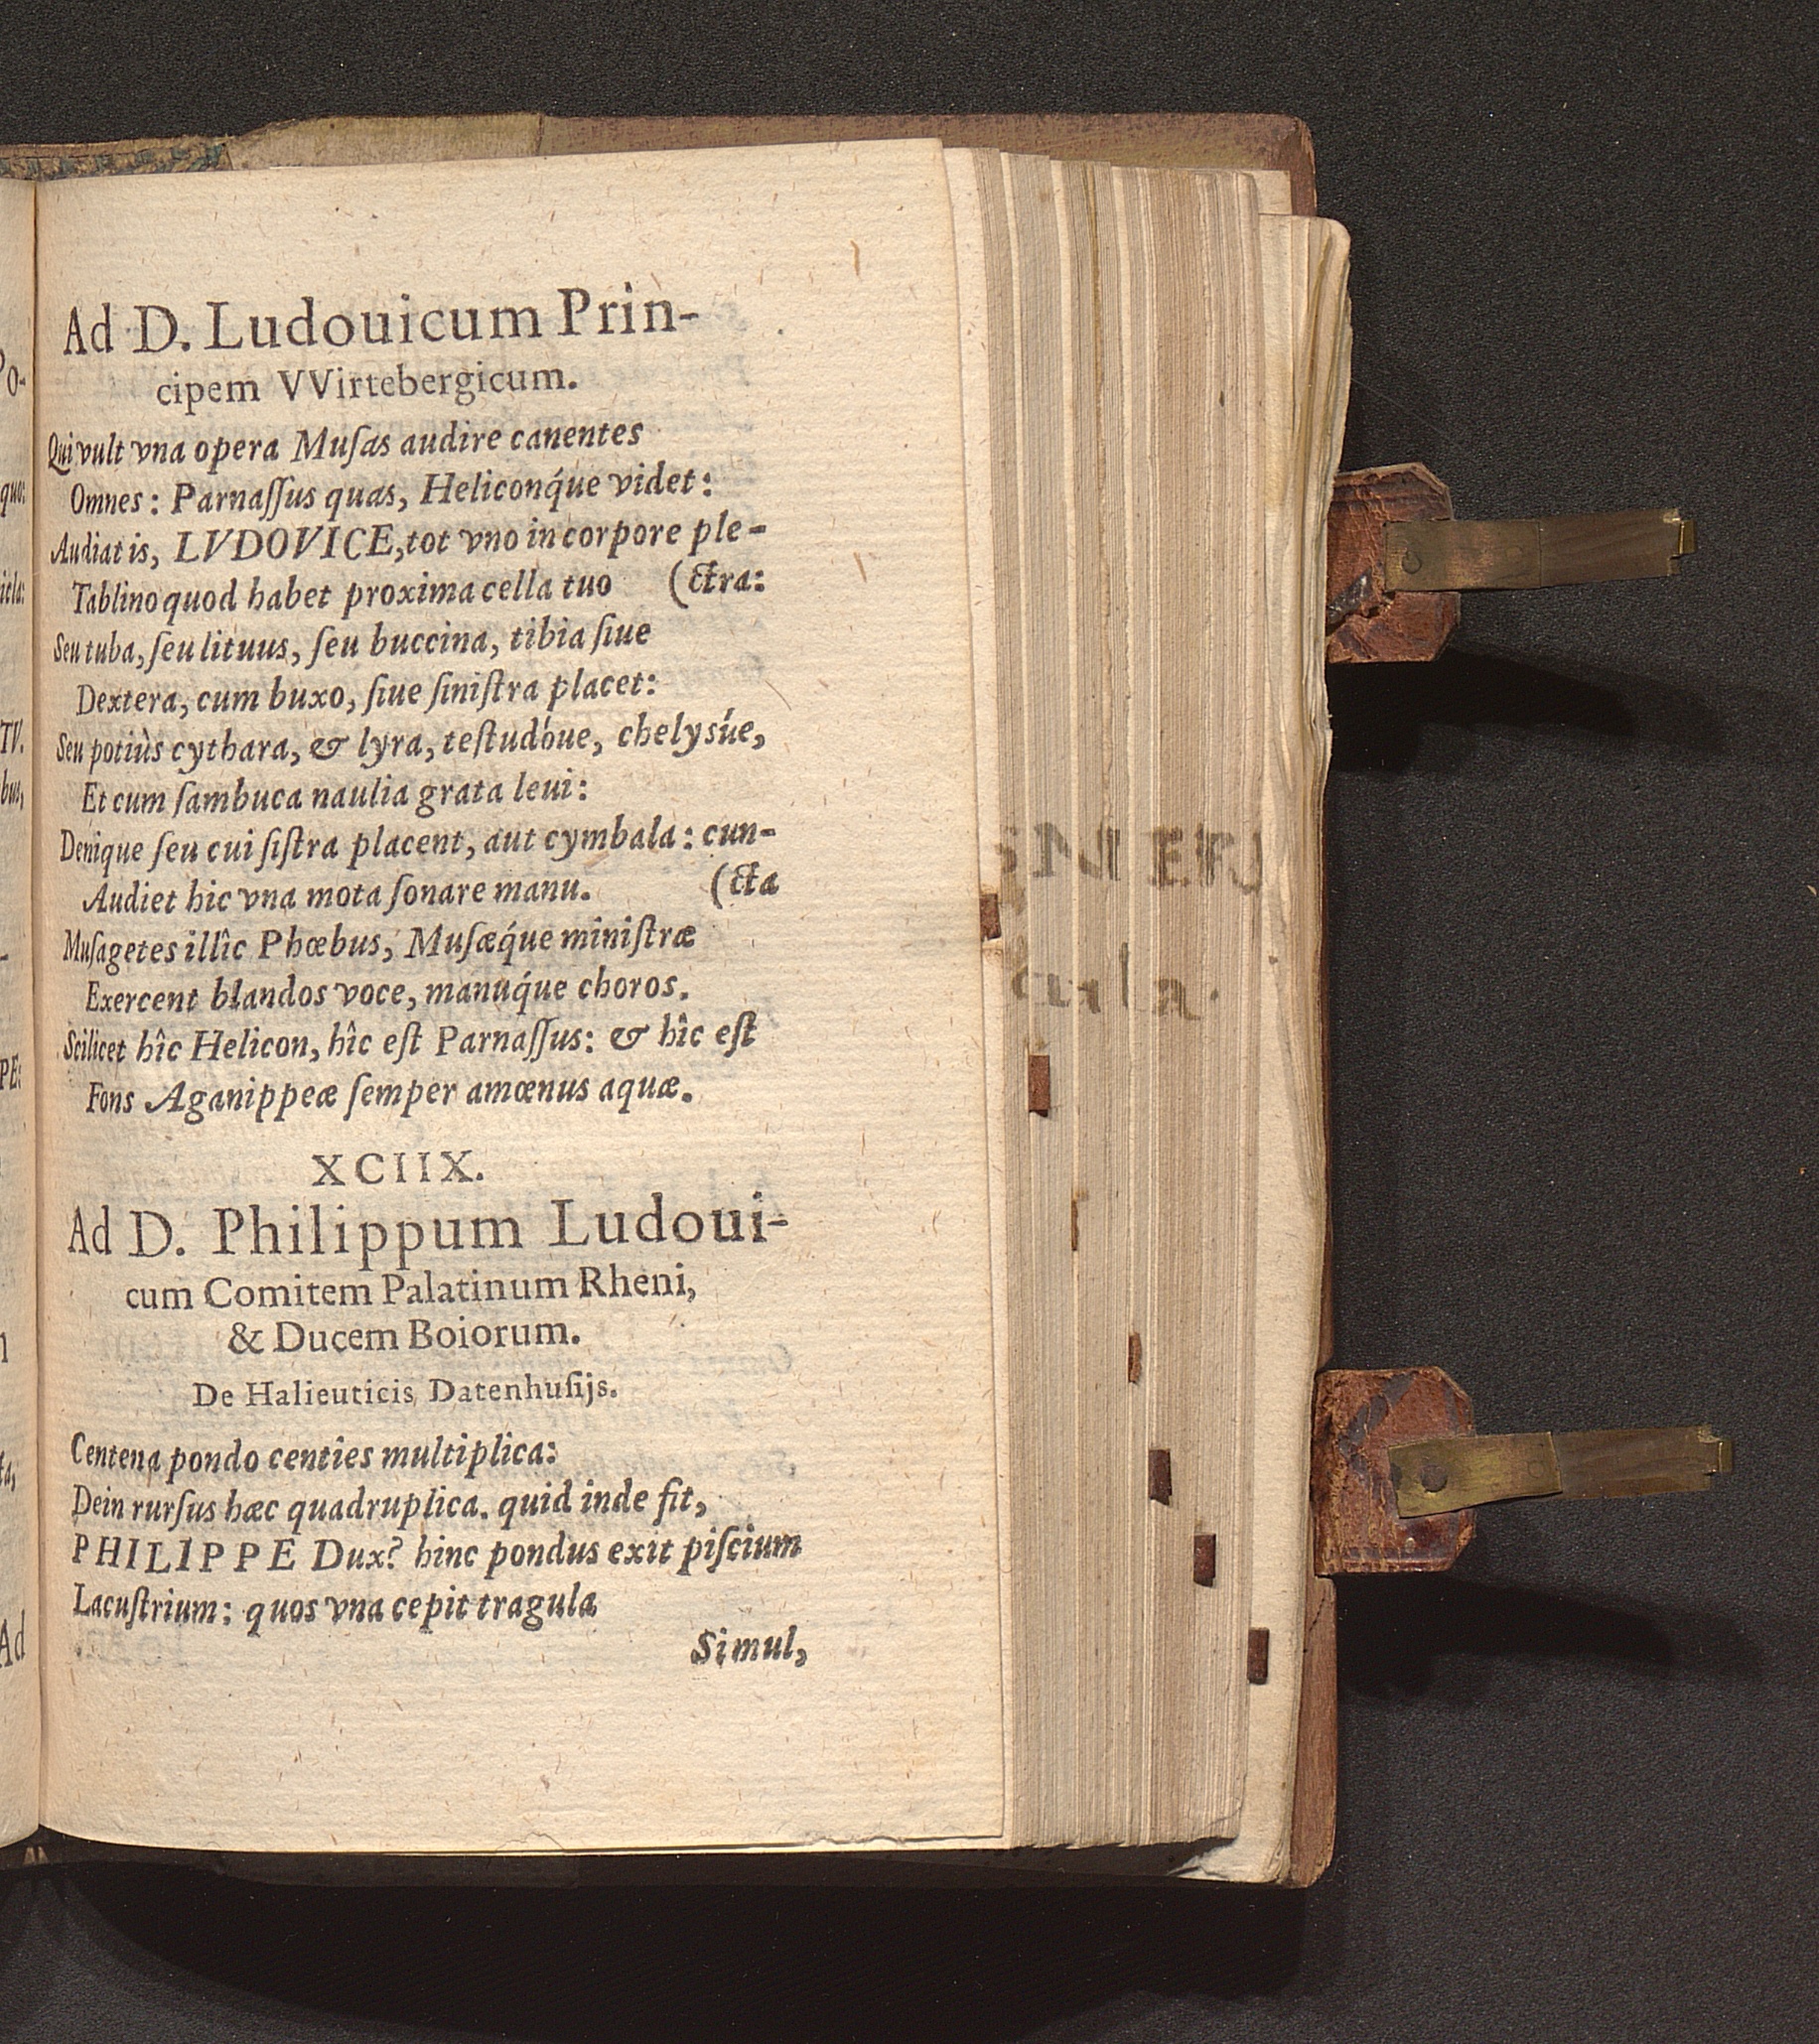 Ad D. Ludouicum Prin-
cipem VVirtebergicum.
Qui vult vna opera Muſas audire canentes
Omnes: Parnaſſus quas, Heliconq́ue videt:
Audiat is, LVDOVICE, tot vno in corpore ple-
Tablino quod habet proxima cella tuo (ctra:
Seu tuba, ſeu lituus, ſeu buccina, tibia ſiue
Dextera, cum buxo, ſiue ſiniſtra placet:
Seu potiùs cythara, & lyra, teſtudóue, chelysúe,
Et cum ſambuca naulia grata leui:
Denique ſeu cui ſiſtra placent, aut cymbala: cun-
Audiet hic vna mota ſonare manu. (cta
Muſagetes illîc Phœbus, Muſæq́ue miniſtræ
Exercent blandos voce, manuq́ue choros.
Scilicet hîc Helicon, hîc eſt Parnaſſus: & hîc eſt
Fons Aganippeæ ſemper amœnus aquæ.
XCIIX.
Ad D. Philippum Ludoui-
cum Comitem Palatinum Rheni,
& Ducem Boiorum.
De Halieuticis Datenhuſijs.
Centena pondo centies multiplica:
Dein rurſus hæc quadruplica. quid inde fit,
PHILIPPE Dux? hinc pondus exit piſcium
Lacuſtrium: quos vna cepit tragula
Simul,